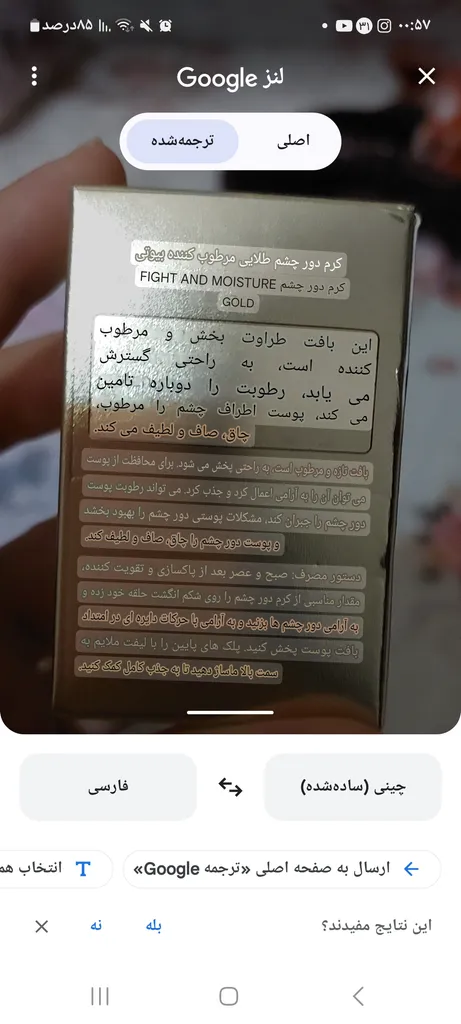 ۰۰:۵۷
۸۵درصد
لنز Google
اصلی
ترجمه‌شده
کرم دور چشم طلایی مرطوب کننده بیوتی
کرم دور چشم FIGHT AND MOISTURE
GOLD
این بافت طراوت بخش و مرطوب
کننده است، به راحتی گسترش
می یابد، رطوبت را دوباره تامین
می کند، پوست اطراف چشم را مرطوب،
چاق، صاف و لطیف می کند.
بافت تازه و مرطوب است، به راحتی پخش می شود. برای محافظت از پوست
می توان آن را به آرامی اعمال کرد و جذب کرد. می تواند رطوبت پوست
دور چشم را جبران کند، مشکلات پوستی دور چشم را بهبود بخشد
و پوست دور چشم را چاق، صاف و لطیف کند.
دستور مصرف: صبح و عصر بعد از پاکسازی و تقویت کننده،
مقدار مناسبی از کرم دور چشم را روی شکم انگشت حلقه خود زده و
به آرامی دور چشم ها بزنید و به آرامی با حرکات دایره ای در امتداد
بافت پوست پخش کنید. پلک های پایین را با لیفت ملایم به
سمت بالا ماساژ دهید تا به جذب کامل کمک کنید.
چینی (ساده‌شده)
فارسی
ارسال به صفحه اصلی «ترجمه Google»
انتخاب هم
این نتایج مفیدند؟
بله
نه